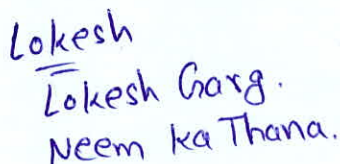 Lokesh
Lokesh Garg.
Neem ka Thana.